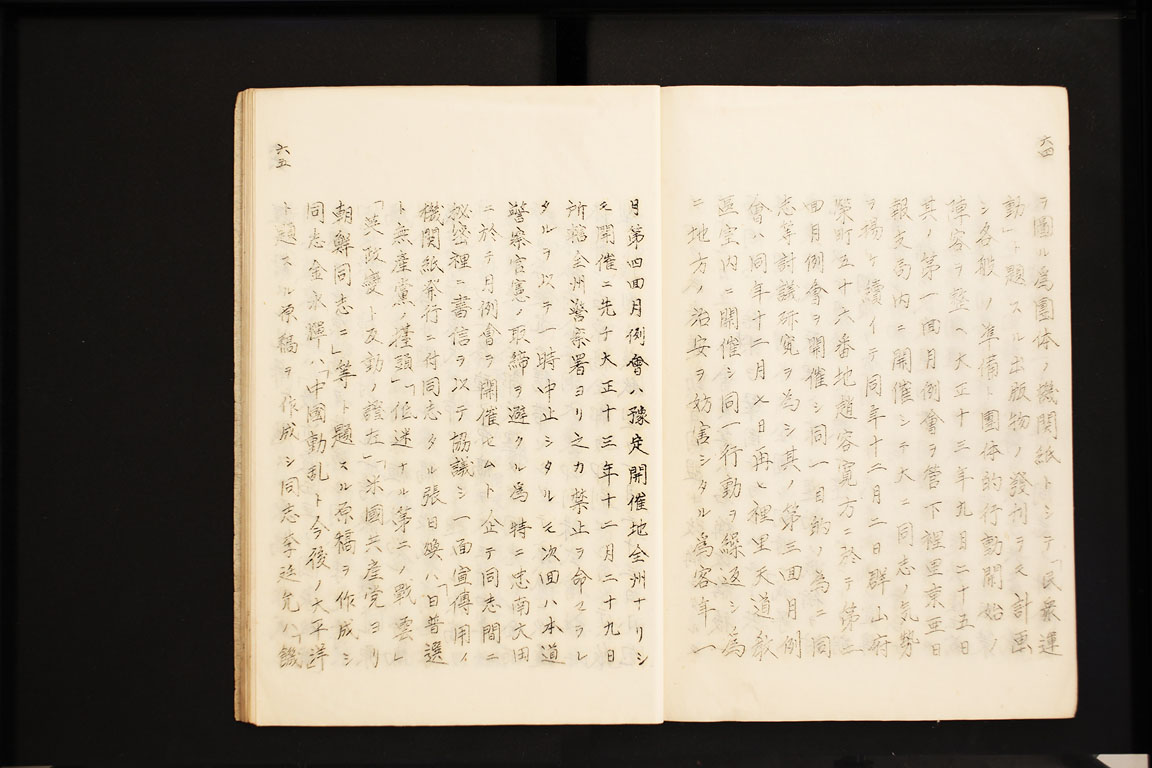 六四
ヲ圖ル為團体ノ機関紙トシテ「民衆運
動」ト題スル出版物ノ發刊ヲモ計画
シ各般ノ準備ト團体的行動開始ノ
陣容ヲ整ヘ大正十三年九月二十五日
其ノ第一回月例會ヲ管下裡里東亜日
報支局内ニ開催シテ大ニ同志ノ気勢
ヲ揚ケ續イテ同年十二月二日群山府
榮町五十六番地趙容寛方ニ於テ第二
回月例會ヲ開催シ同一目的ノ為ニ同
志等討議研究ヲ為シ其ノ第三回月例
會ハ同年十二月七日再ヒ裡里天道教
區室内ニ開催シ同一行動ヲ繰返シ為
ニ地方ノ治安ヲ妨害シタル為客年一
六五
月第四回月例會ハ豫定開催地全州ナリシ
モ開催ニ先チ大正十三年十二月二十九日
所轄全州警察署ヨリ之カ禁止ヲ命セラレ
タルヲ以テ一時中止シタルモ次回ハ本道
警察官憲ノ取締ヲ避クル為特ニ忠南大田
ニ於テ月例會ヲ開催セムト企テ同志間ニ
秘密裡ニ書信ヲ以テ協議シ一面宣傳用ノ
機関紙発行ニ付同志タル張日煥ハ「日普選
ト無産黨ノ擡頭」「低迷ナル第二ノ戰雲」
「英政變ト反動ノ證左」「米國共産党ヨリ
朝鮮同志ニ」等ト題スル原稿ヲ作成シ
同志金永輝ハ「中國動乱ト今後ノ太平洋」
ト題スル原稿ヲ作成シ同志李廷允ハ「饑